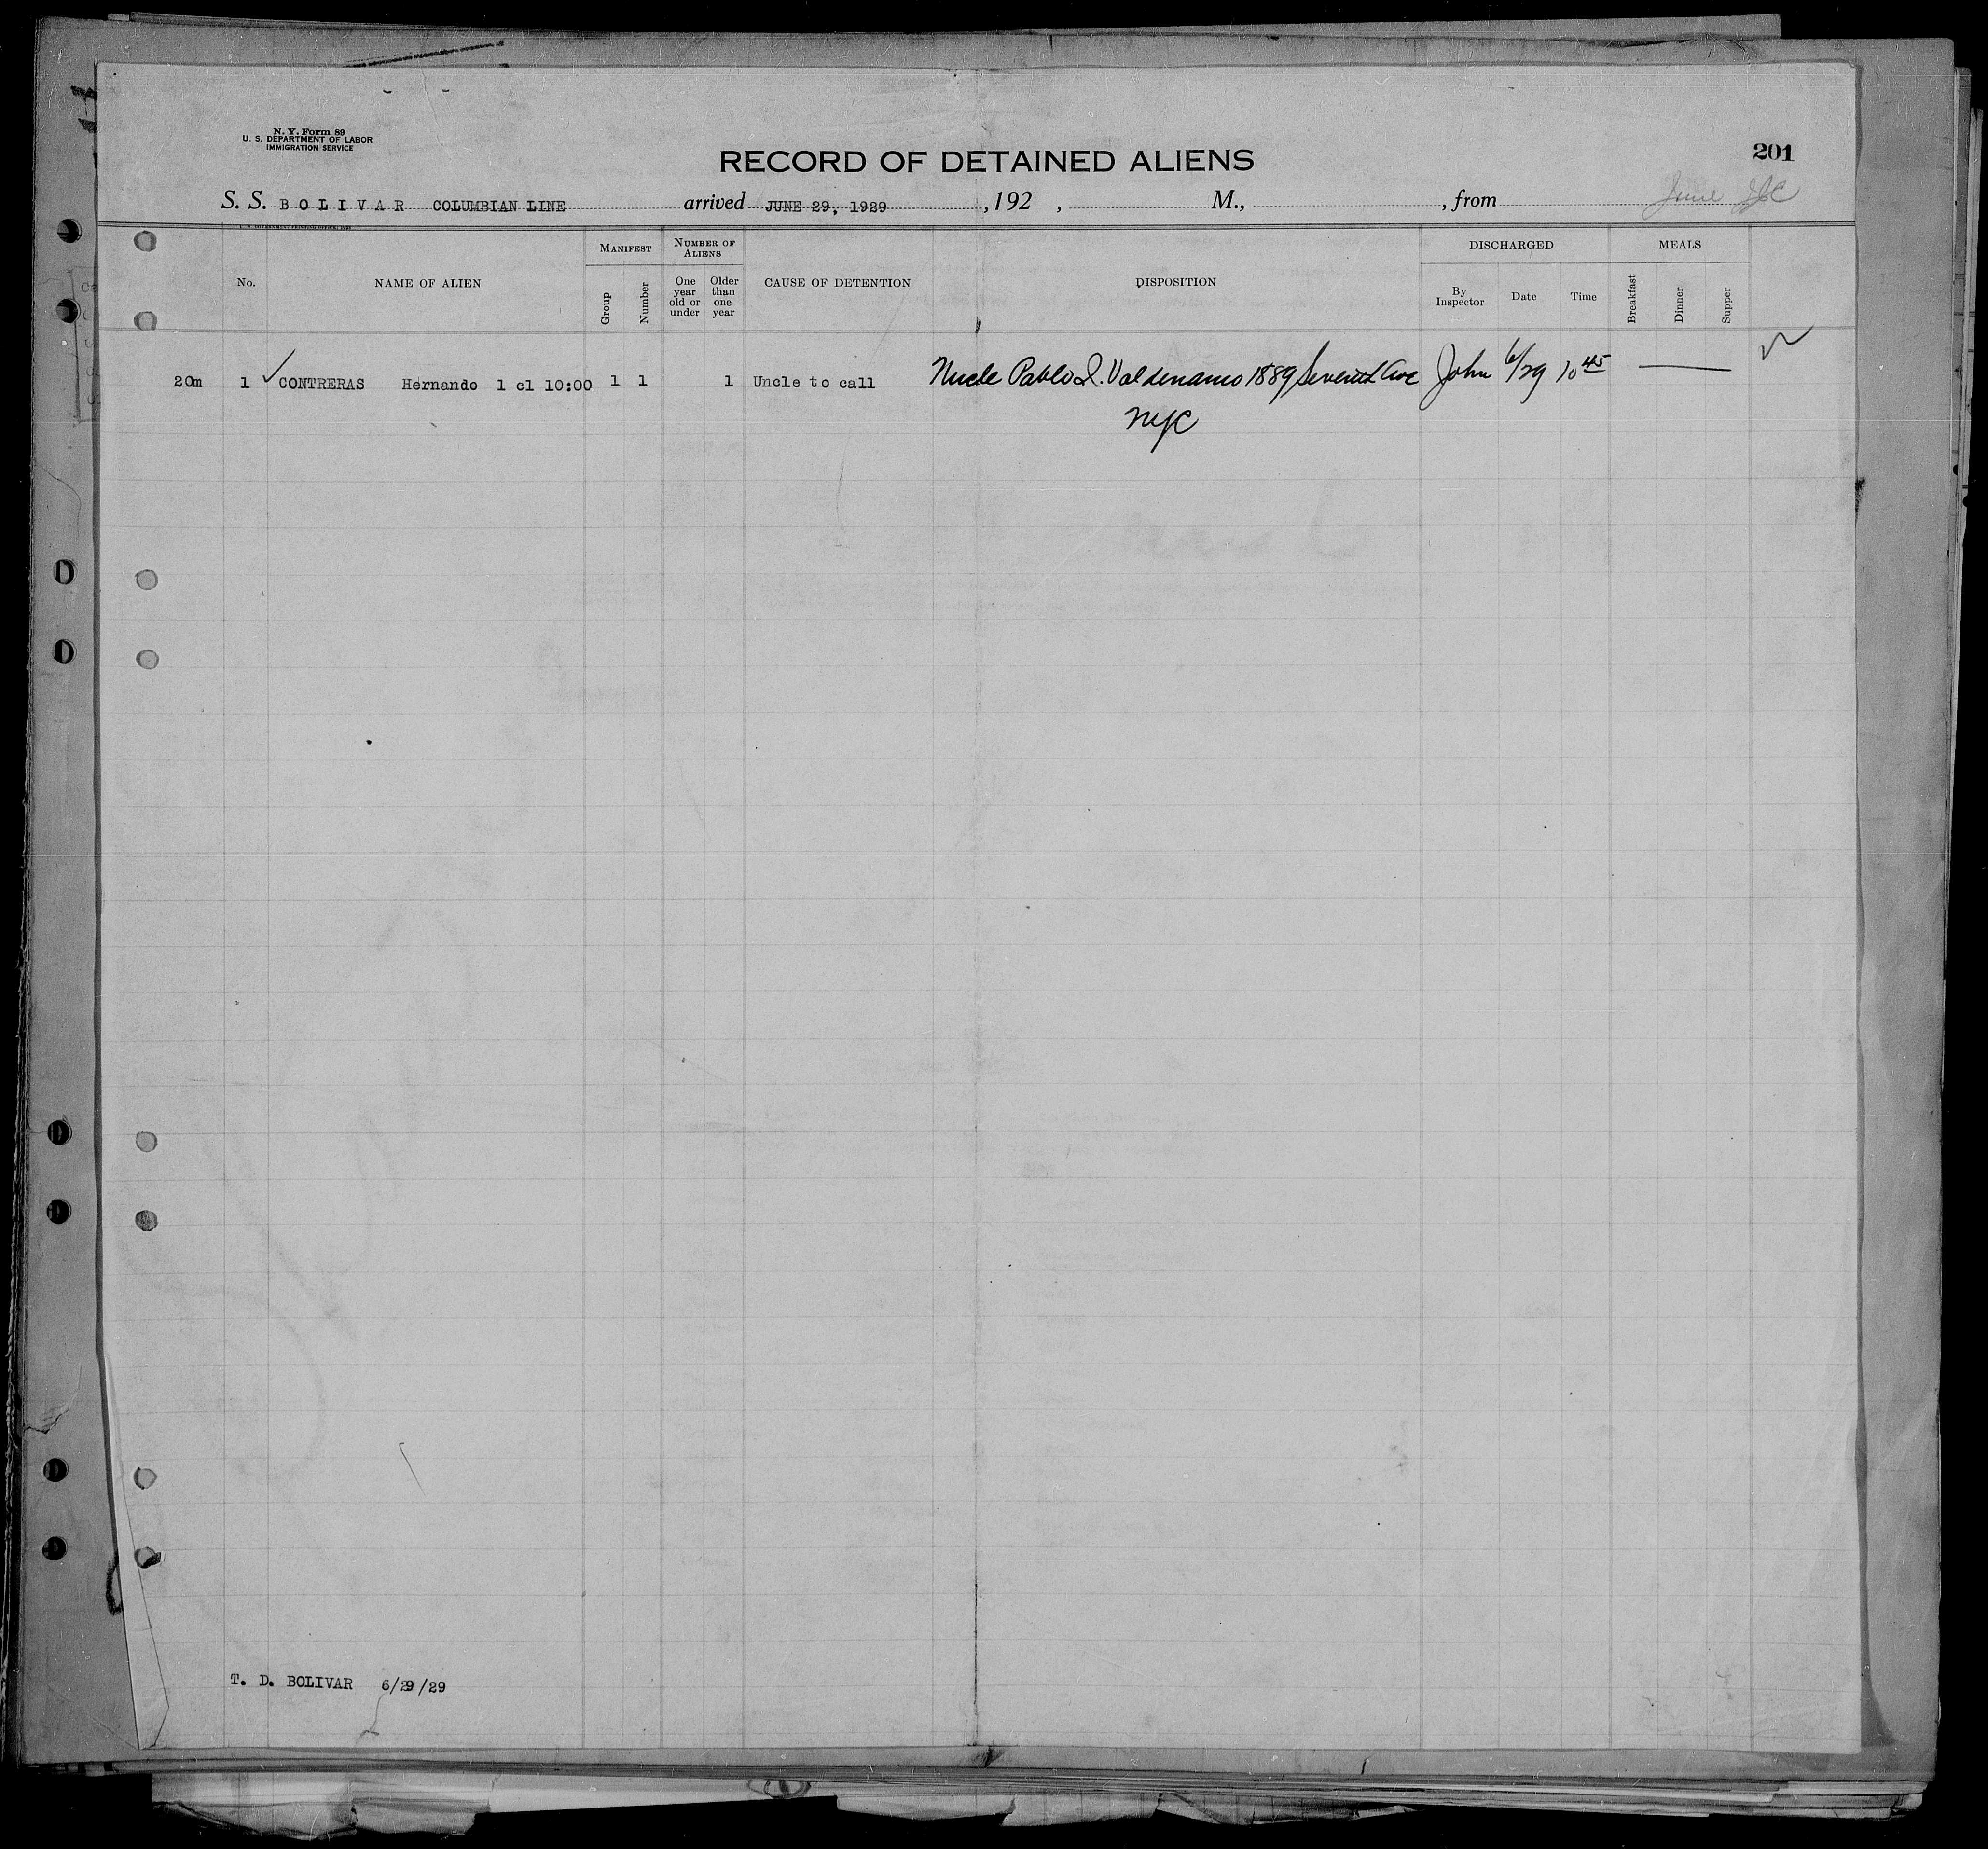 N. Y. Form 89
U. S. DEPARTMENT OF LABOR
IMMIGRATION SERVICE
201
RECORD OF DETAINED ALIENS
S. S. BOLIVAR COLUMBIAN LINE arrived JUNE 29, 1929, 192 , M., , from June
MANIFEST NUMBER OF ALIENS DISCHARGED MEALS
No. NAME OF ALIEN Group Number One year old or under Older than one year CAUSE OF DETENTION DISPOSITION By Inspector Date Time Breakfast Dinner Supper
20m 1 ✓ CONTRERAS Hernando 1 cl 10:00 1 1 1 Uncle to call Uncle Pablo 1889 Seventh Ave John 6/29 10 45
NYC
T. D. BOLIVAR 6/29/29